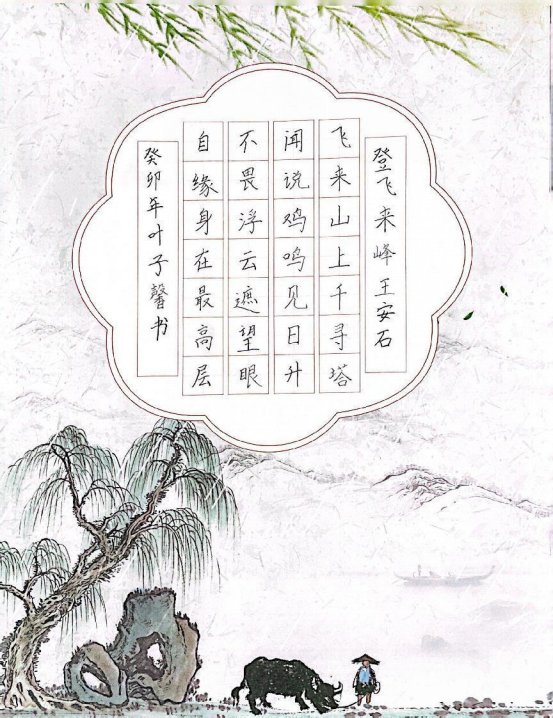 登飞来峰王安石
飞来山上千寻塔
闻说鸡鸣见日升
不畏浮云遮望眼
自缘身在最高层
癸卯年叶子馨书